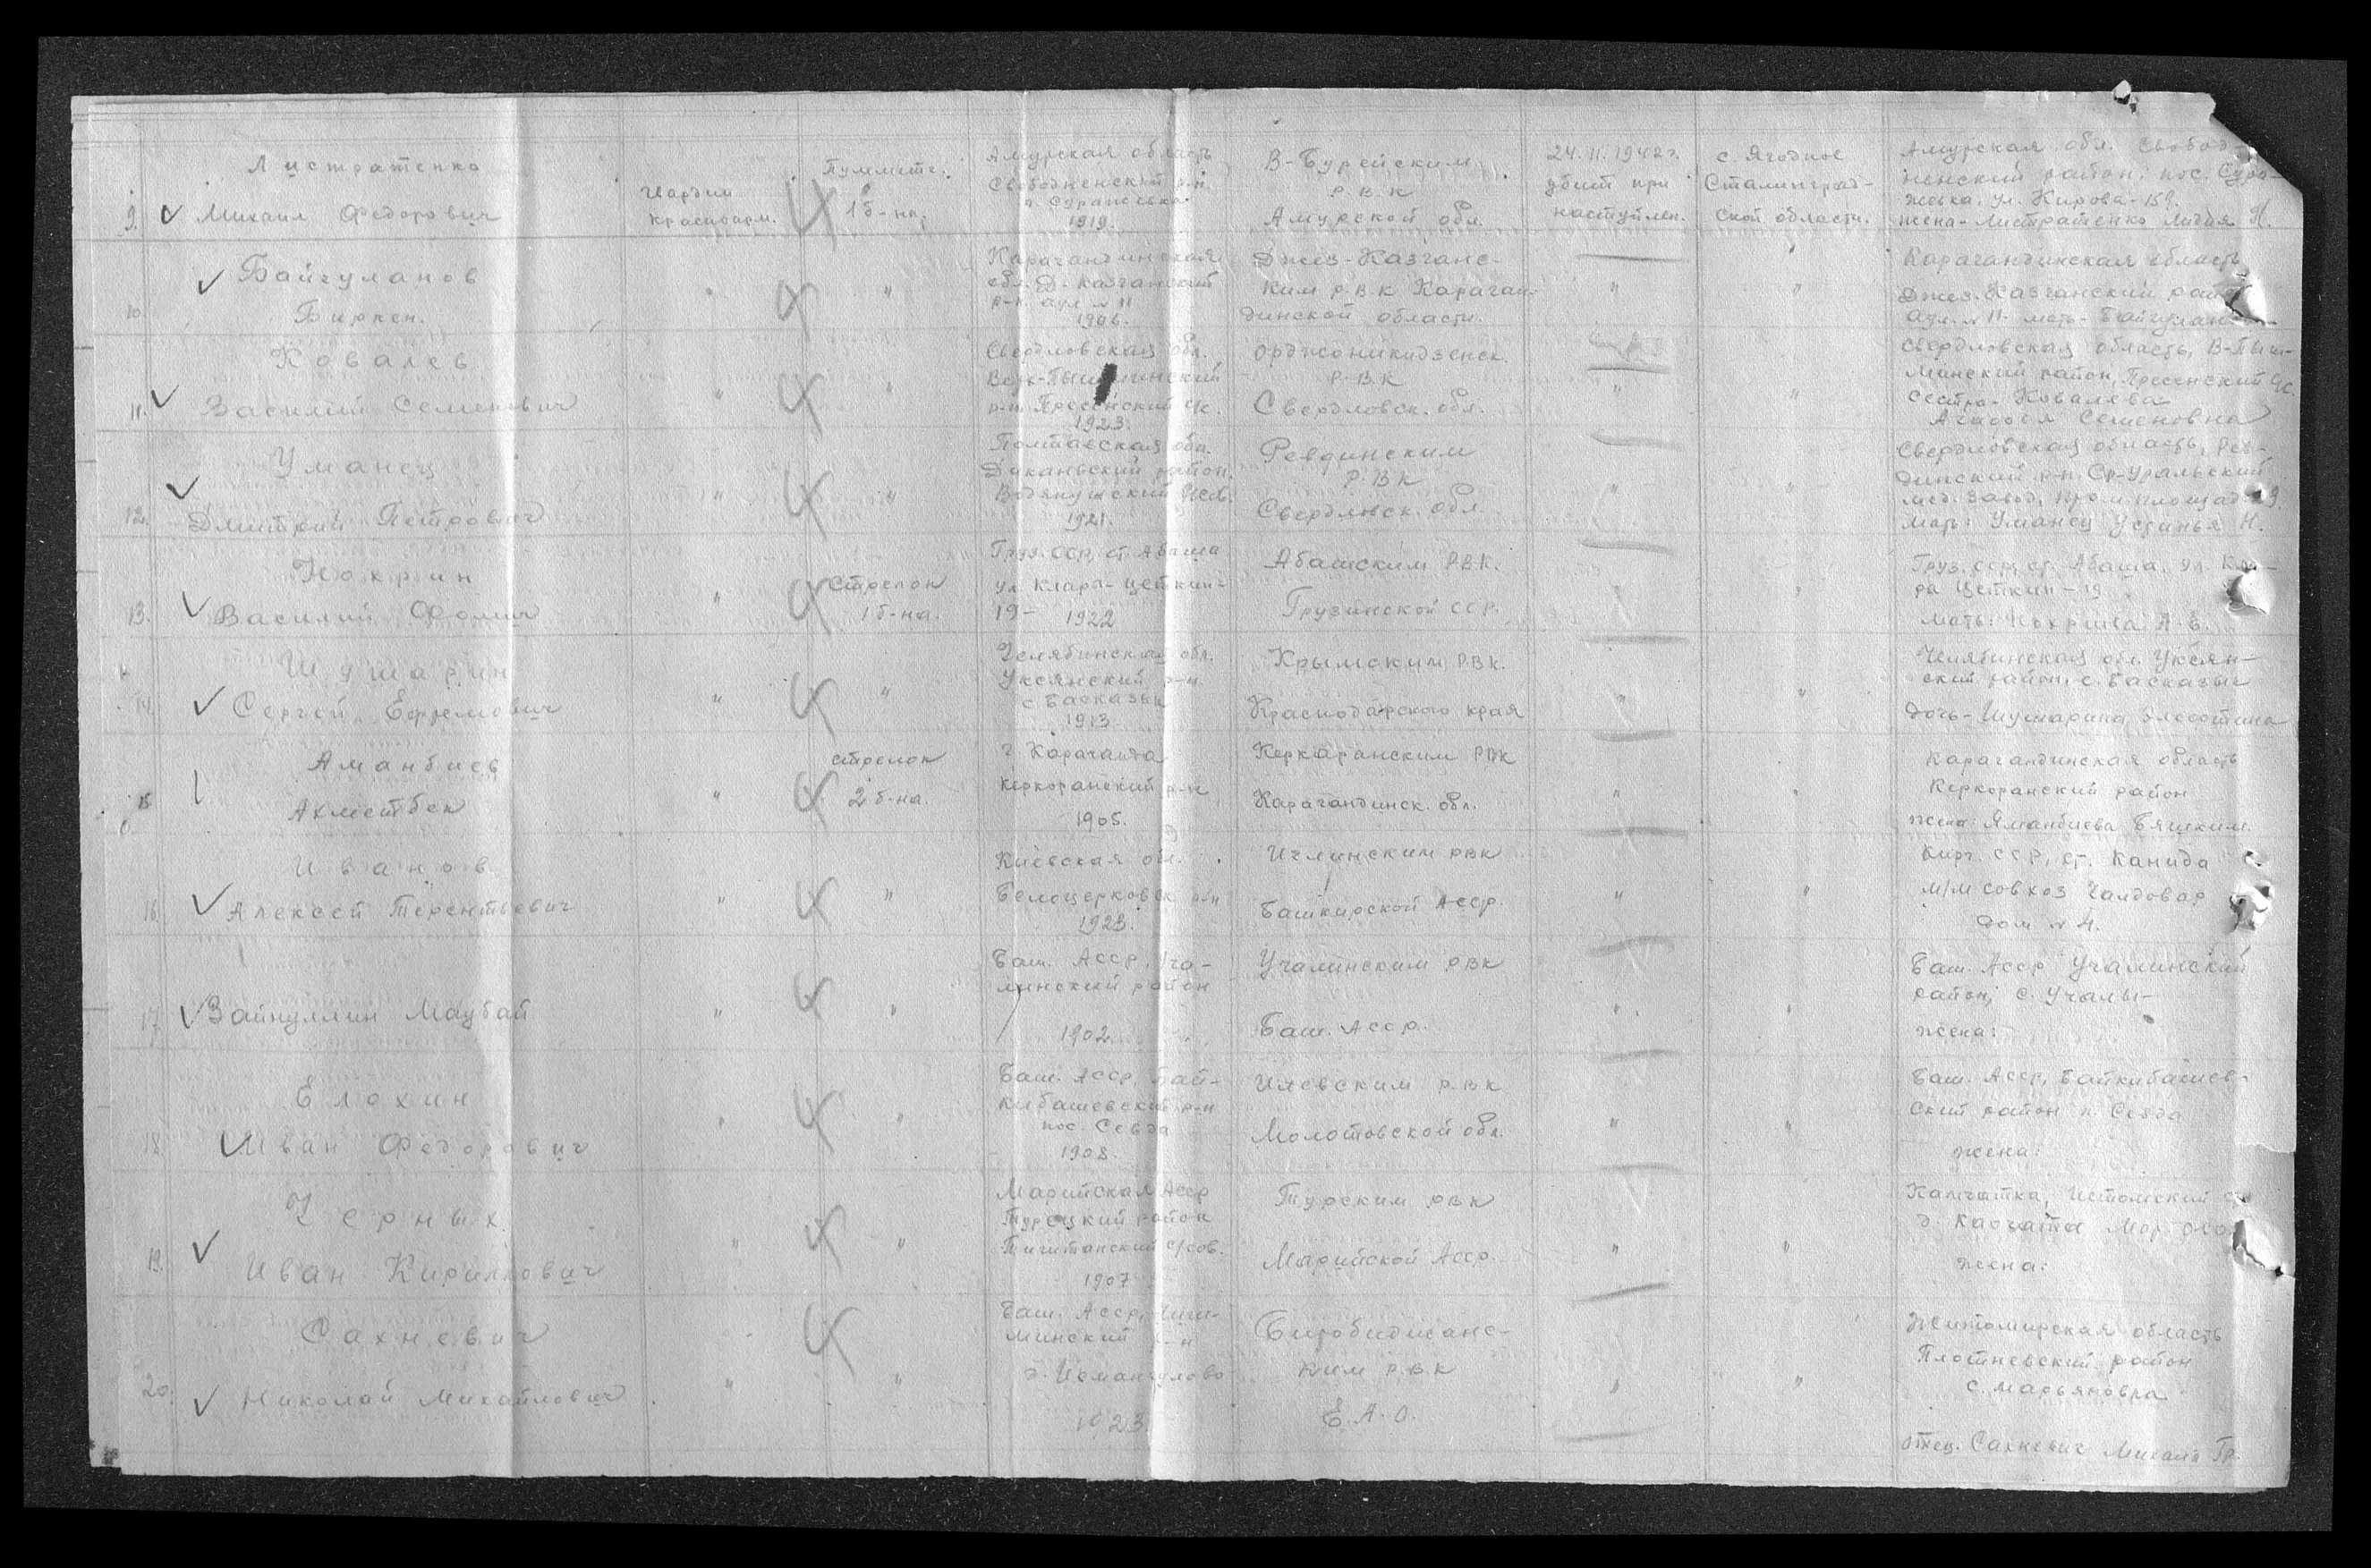 9. Листратенко
Михаил Федорович
Гвардии
красноарм.
Пулеметч.
1 б-на.
Амурская область
Свободненский р-н.
п. Суражевка
1919.
В-Бурейским
Р.В.К
Амурской обл.
24.11.1942 г.
убит при
наступлен.
с. Ягодное
Сталинград-
ской области.
Амурская обл. Свобод-
ненский район, пос. Сура-
жевка, ул. Кирова-159.
жена-Листратенко Лидия Н.
10. Байгуланов
Биркен.
" "
Карагандинская
обл. Д. Казганский
р-н. аул N 11
1906.
Джез-Казганс-
ким Р.В.К Караган-
динской области.
" "
Карагандинская область
Джез-Казганский район
аул. N 11. мать-
11. Ковалев
Василий Семенович
" "
Свердловская обл.
р-н Пресенский с/с.
1923.
Орджоникидзенск.
Р.В.К
Свердловск. обл.
" "
Свердловская область, В-Пыш-
минский район, Пресенский с/с.
сестра-Ковалева
Семеновна
12. Уманец
Дмитрий Петрович
" "
Полтавская обл.
Диканьский район.
1921.
Ревдинским
Р.В.К
Свердловск. обл.
" "
Свердловская область, Рев-
динский р-н Ср-Уральский
мед. завод, пром. площад
мать: Уманец Устинья Н.
13. Нохрин
Василий Фомич
"
стрелок
1 б-на.
Груз. ССР, ст. Абаша
ул. Клара-Цеткин-
19- 1922
Абашским Р.В.К.
Грузинской ССР.
" "
Груз. ССР, ст. Абаша, ул. Кла-
ра Цеткин-19
мать: Нохрина А.В.
14. Шушарин
Сергей Ефремович
" "
Челябинская обл.
Уксянский р-н
с Басказык
1913.
Крымским Р.В.К.
Краснодарского края
" "
Челябинская обл. Уксян-
ский район, с. Басказык
дочь-Шушарина
15 Аманбиев
Ахметбек
"
стрелок
2 б-на.
г. Караганда
Керкаранский р-н
1905.
Керкаранским РВК
Карагандинск. обл.
" "
Карагандинская область
Керкоранский район
жена Яманбиева
16. Иванов
Алексей Терентьевич
" "
Киевская обл.
Белоцерковск р-н
1923.
Иглинским РВК
Башкирской АССР.
" "
Кирг. ССР, ст. Канида
м/м совхоз Чалдовар
дом N 4.
17. Зайнуллин Маубай
" "
Баш. АССР, Уча-
линский район
1902
Учалинским РВК
Баш. АССР.
" "
Баш. АССР Учалинский
район, с. Учалы-
жена:
18. Елохин
Иван Федорович
" "
Баш. АССР, Бай-
кибашевский р-н
пос. Севда
1908.
Р.В.К
Молотовской обл.
" "
Баш. АССР, Байкибашев-
ский район п. Севда
жена:
19. Черных
Иван Кириллович
" "
Марийская АССР
Турецкий район
с/сов.
1907
Турским РВК
Марийской АССР.
" "
Камчатка,
д.
жена:
20. Сахневич
Николай Михайлович
" "
Баш. АССР, Чиш-
минский р-н
д. Исмангулово
1923.
Биробиджанс-
ким Р.В.К
Е.А.О.
" "
Житомирская область
район
с. Марьяновка
отец. Сахневич Михаил Гр.